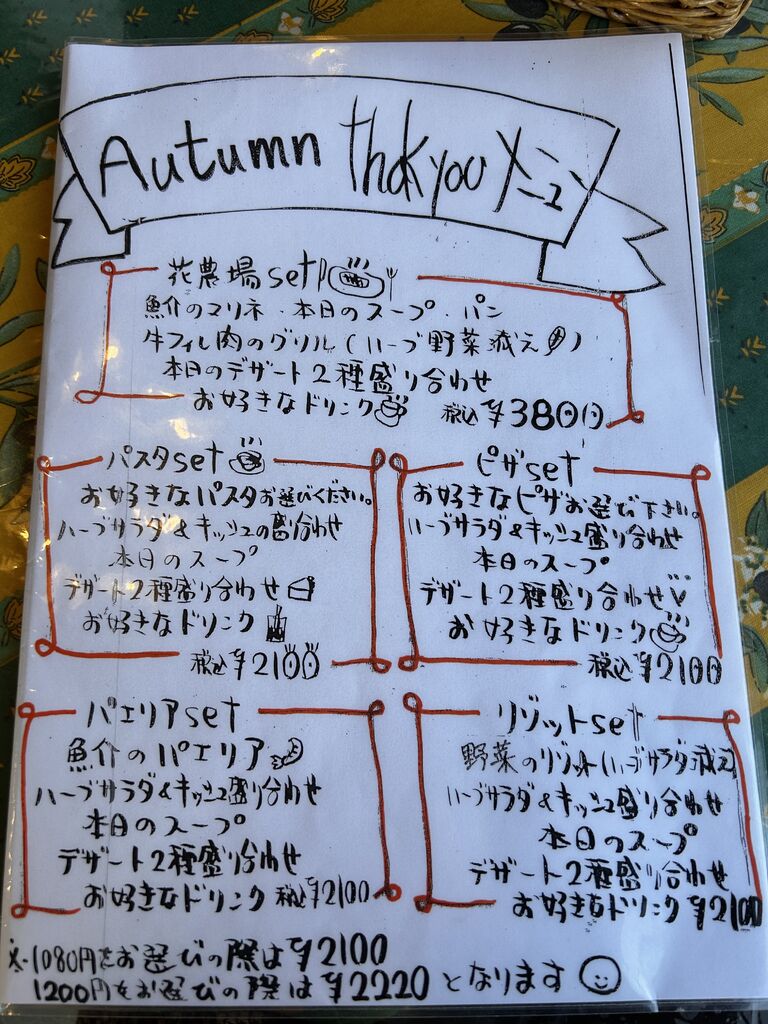 Autumn Thakyou メニュー
花農場set
魚介のマリネ・本日のスープ・パン
牛フィレ肉のグリル(ハーブ野菜減え)
本日のデザート2種盛り合わせ
お好きなドリンク 税込¥3800
パスタset
お好きなパスタお選びください。
ハーブサラダ&キッシュの盛合わせ
本日のスープ
デザート2種盛り合わせ
お好きなドリンク
税込¥2100
ピザset
お好きなピザお選び下さい。
ハーブサラダ&キッシュ盛り合わせ
本日のスープ
デザート2種盛り合わせ
お好きなドリンク
税込¥2100
パエリアset
魚介のパエリア
ハーブサラダ&キッシュ盛り合わせ
本日のスープ
デザート2種盛り合わせ
お好きなドリンク 税込¥2100
リゾットset
野菜のリゾット(ハーブサラダ減え)
ハーブサラダ&キッシュ盛り合わせ
本日のスープ
デザート2種盛り合わせ
お好きなドリンク ¥2100
1080円をお選びの際は¥2100
1200円をお選びの際は¥2220となります